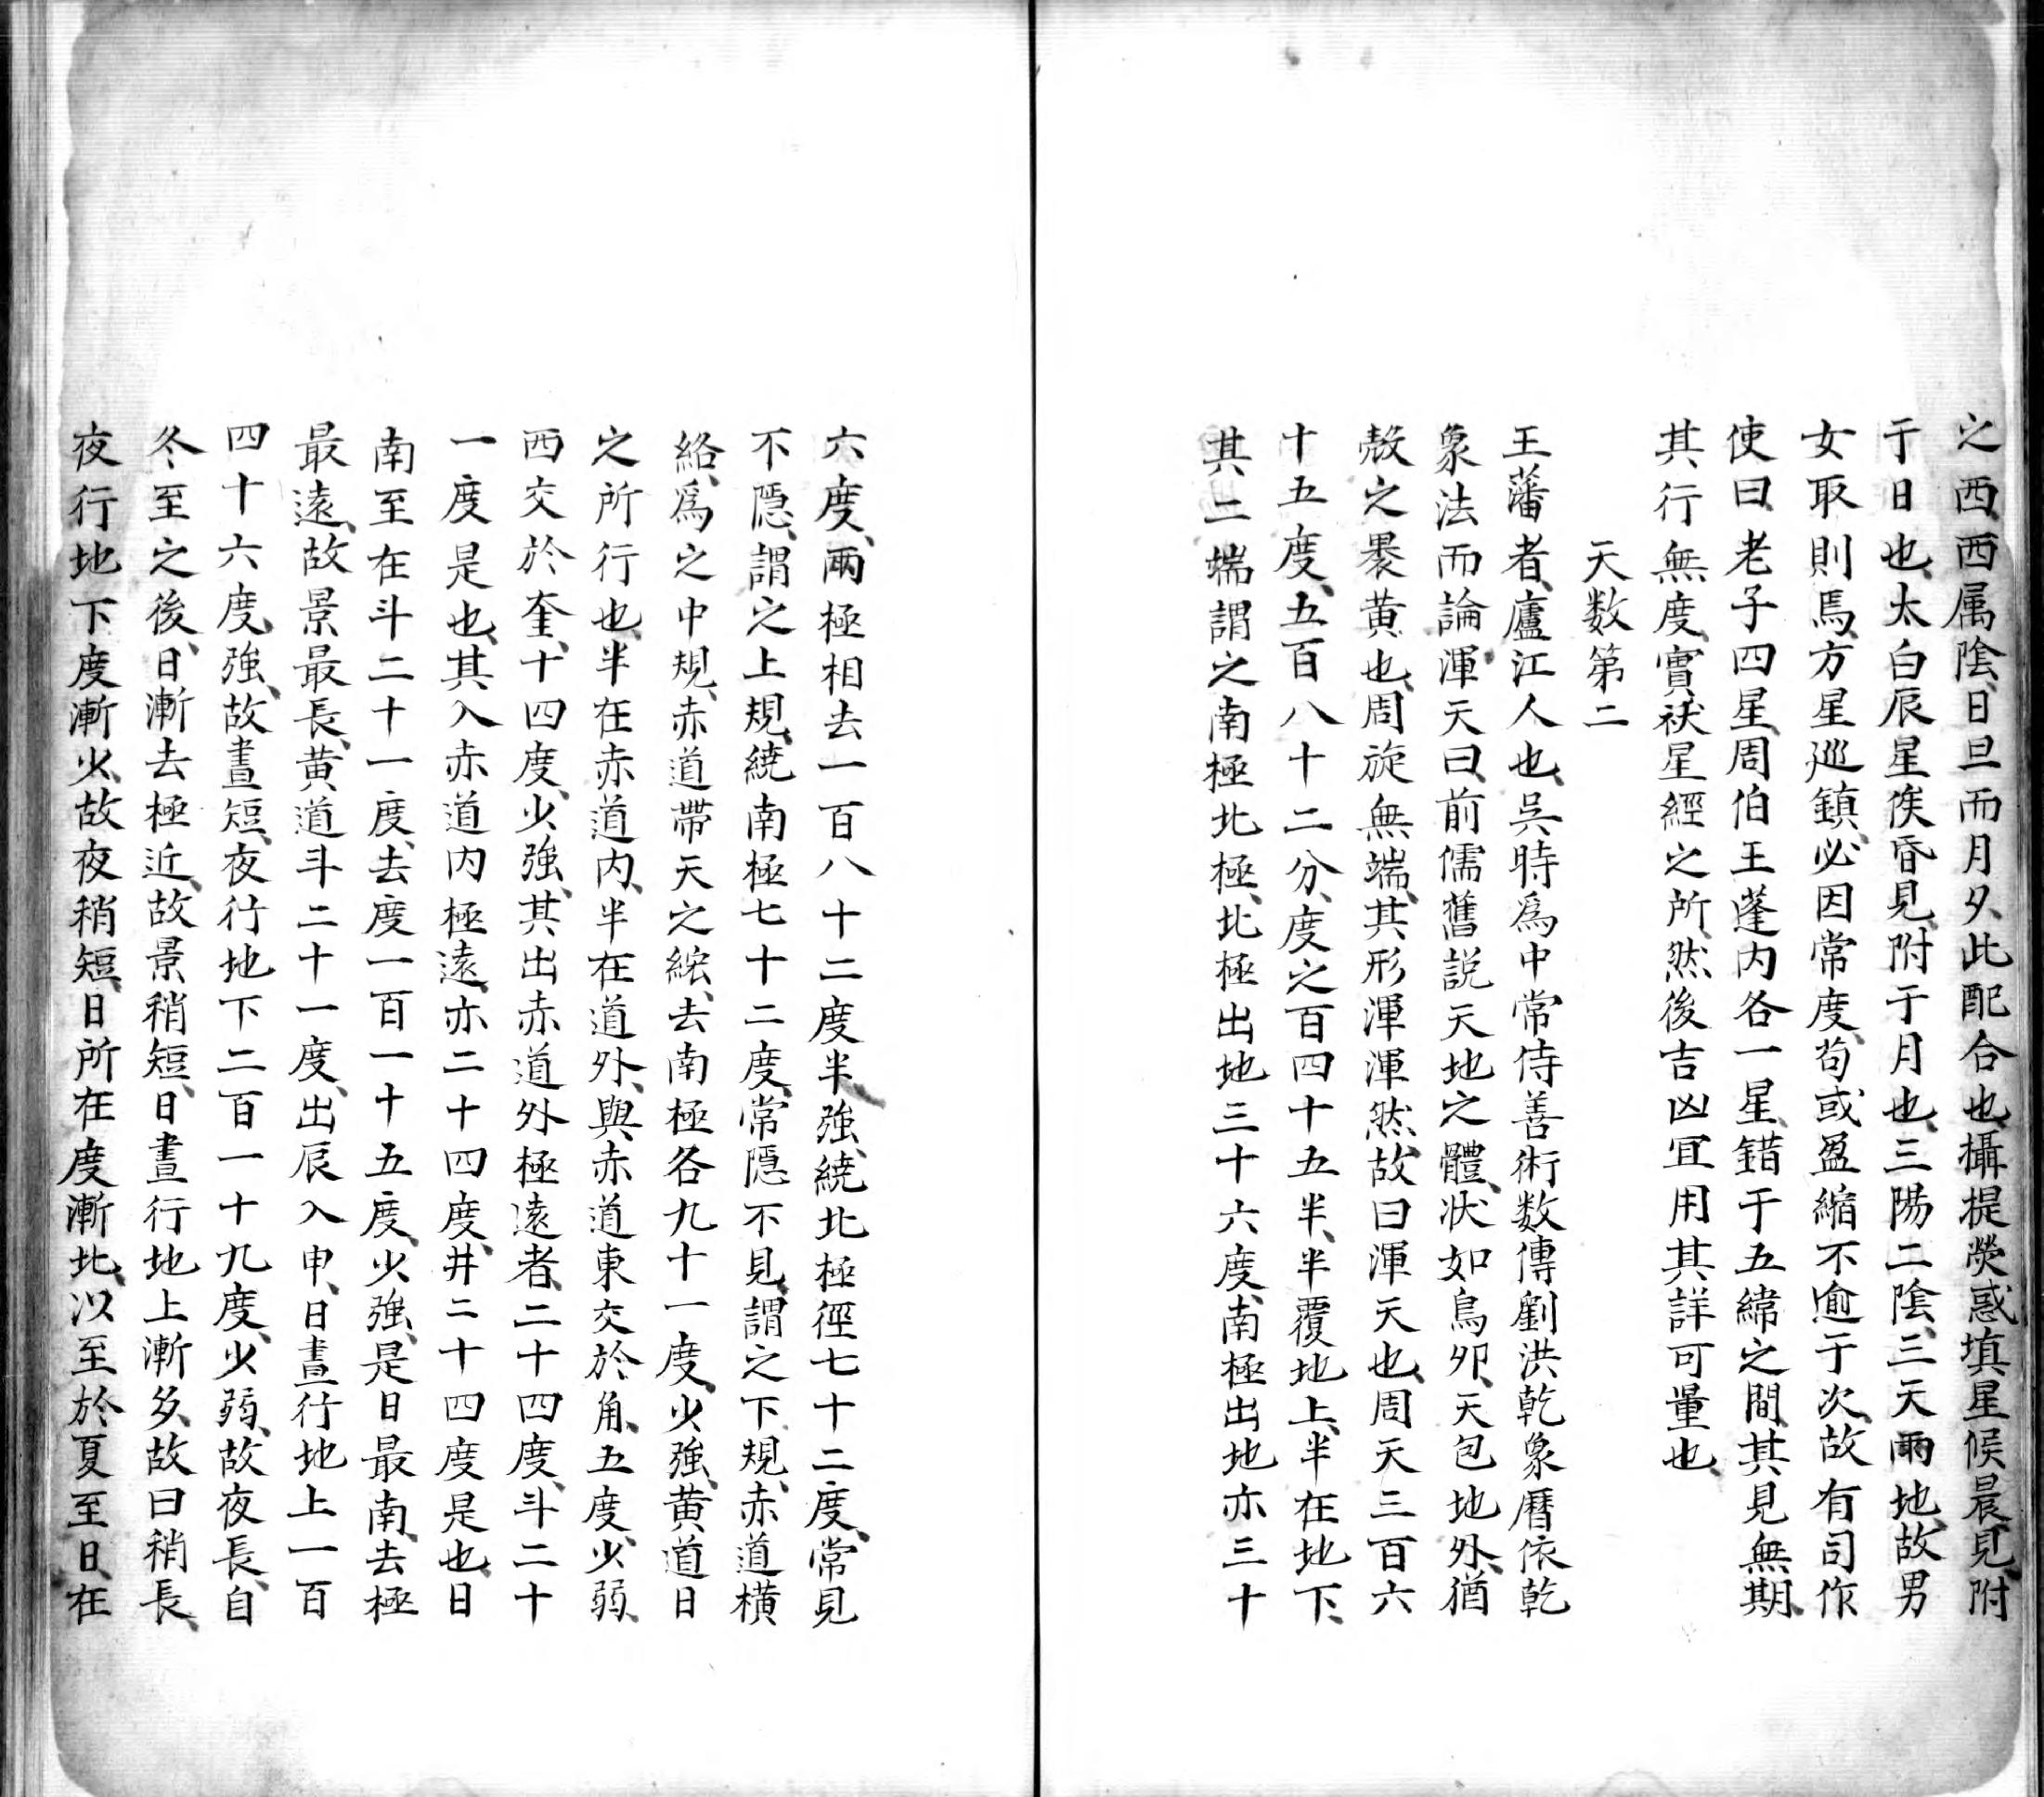 之西、西属陰、日旦而月夕、此配合也、攝提熒惑填星候晨見、附
于日也、太白辰星候昏見、附于月也、三陽二陰、三天兩地、故男
女取則焉、方星巡鎮、必因常度、苟或盈縮不逾于次、故有司作
使曰、老子四星、周伯王蓬内各一星、錯于五緯之間、其見無期、
其行無度、實祅星經之所、然後吉凶冝用其詳可量也、
天数第二
王藩者、廬江人也、呉時爲中常侍善術数傳劉洪乾象暦依乾
象法而論渾天曰、前儒舊説天地之體、状如鳥夘、天包地外、猶
殻之褁黄也、周旋無端、其形渾渾然、故曰渾天也、周天三百六
十五度、五百八十二分、度之百四十五半、半覆地上、半在地下、
其二端謂之南極北極、北極出地三十六度、南極出地亦三十
六度、兩極相去一百八十二度半強、繞北極徑七十二度、常見
不隱、謂之上規、繞南極七十二度、常隱不見、謂之下規、赤道横
絡、爲之中規、赤道帶天之紘、去南極各九十一度、少強、黄道日
之所行也、半在赤道内、半在道外、與赤道東交於角、五度、少弱、
西交於奎、十四度、少強、其出赤道外極遠者、二十四度、斗二十
一度是也、其入赤道内極遠、亦二十四度、井二十四度是也、日
南至在斗二十一度、去度一百一十五度、少強、是日最南、去極
最遠、故景最長、黄道斗二十一度、出辰入申、日晝行地上一百
四十六度、強、故晝短、夜行地下二百一十九度、少弱、故夜長、自
冬至之後、日漸去極近、故景稍短、日晝行地上漸多、故曰稍長、
夜行地下度漸少、故夜稍短、日所在度漸北、以至於夏至日、在